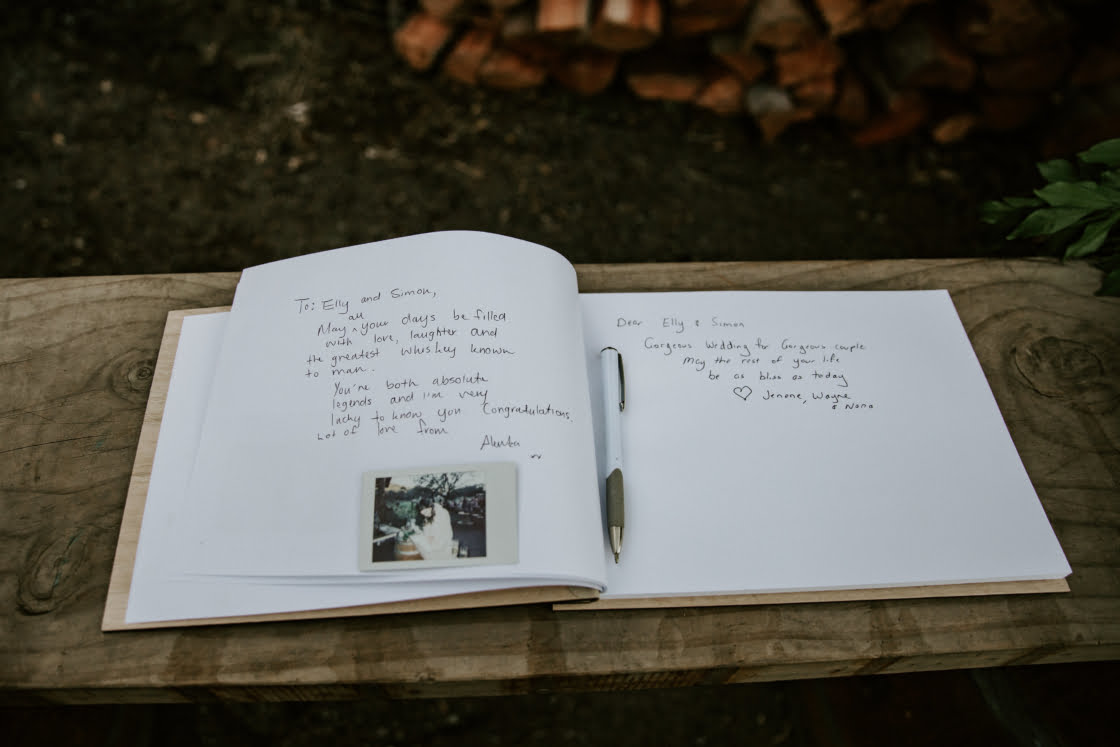 To: Elly and Simon,
May ^ all your days be filled
with love, laughter and
the greatest whiskey known
to man.
You're both absolute
legends and I'm very
lucky to know you Congratulations.
Lot of love from
Dear Elly & Simon
Gorgeous Wedding for Gorgeous couple
May the rest of your life
be as bliss as today
♡ Jenone, Wayne
& Nana